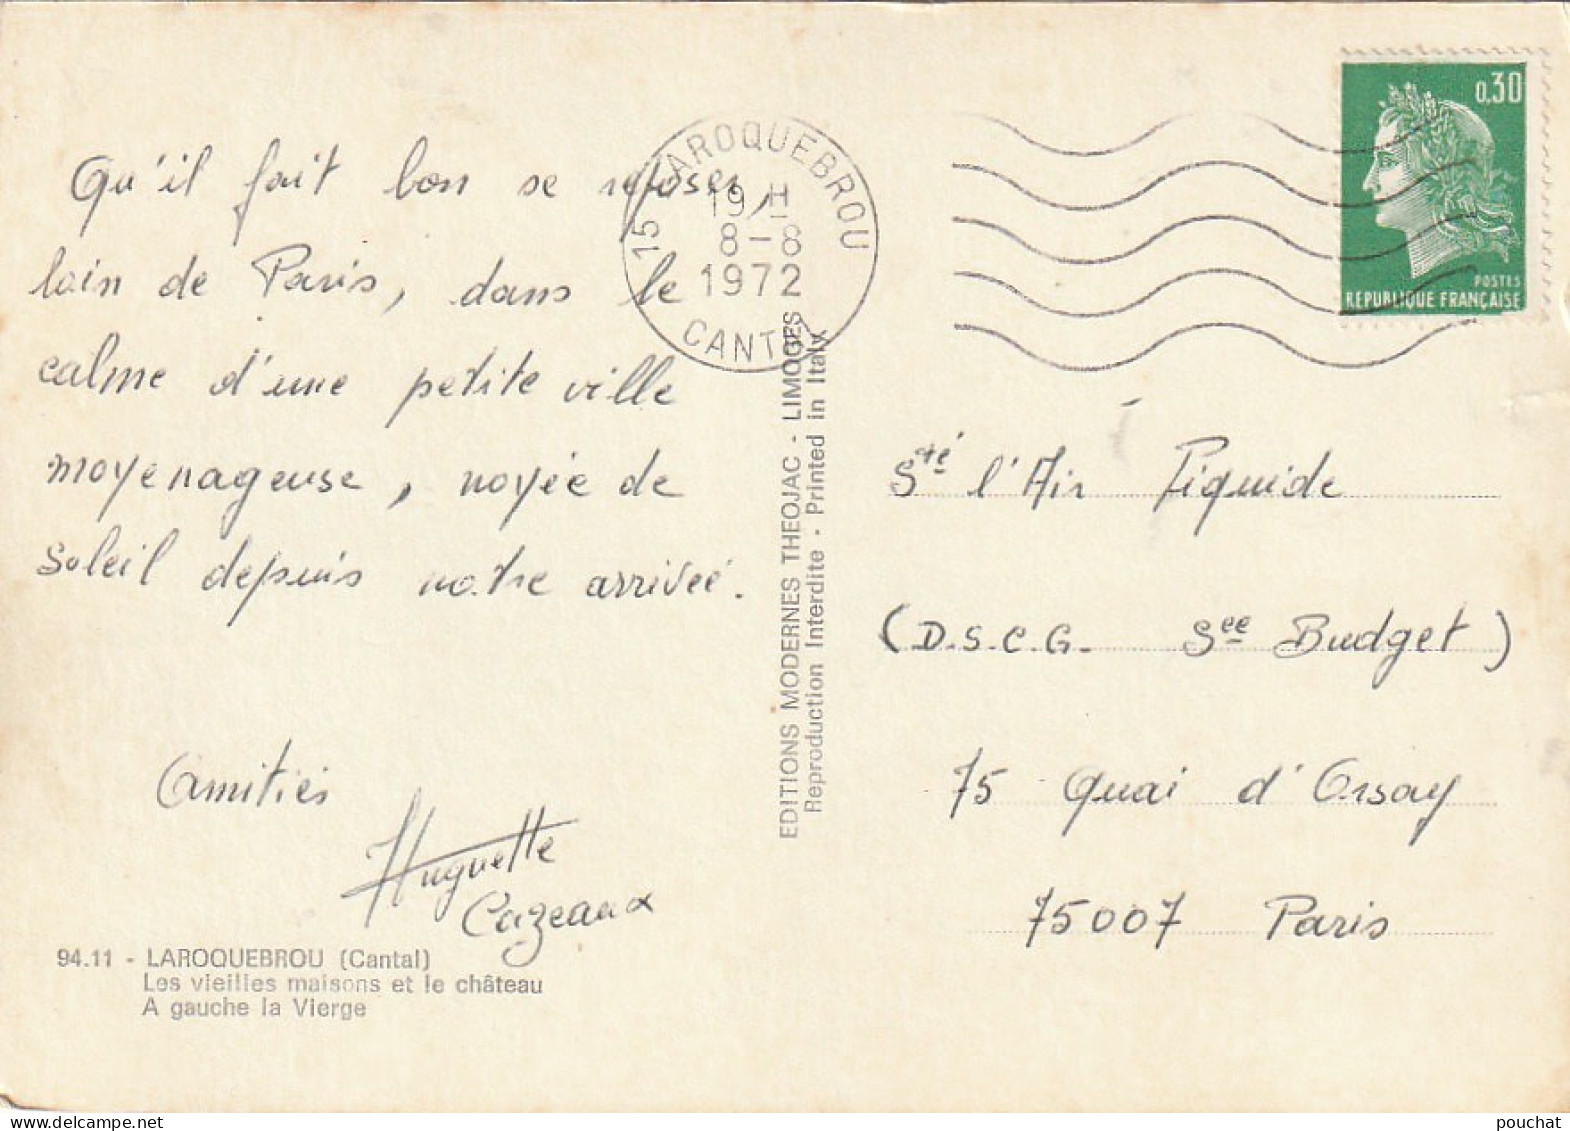 Qu'il fait bon se reposer,
loin de Paris, dans le
calme d'une petite ville
moyenageuse, noyée de
soleil depuis notre arrivée.
Amitiés
Huguette
Cazeaux
94.11 - LAROQUEBROU (Cantal)
Les vieilles maisons et le château
A gauche la Vierge
EDITIONS MODERNES THEOJAC - LIMOGES
Reproduction Interdite - Printed in Italy
15 LAROQUEBROU
19 H
8-8
1972
CANTAL
0,30
POSTES
REPUBLIQUE FRANÇAISE
Sté l'Air Liquide
(D.S.C.G. See Budget)
75 Quai d'Orsay
75007 Paris
pouchat